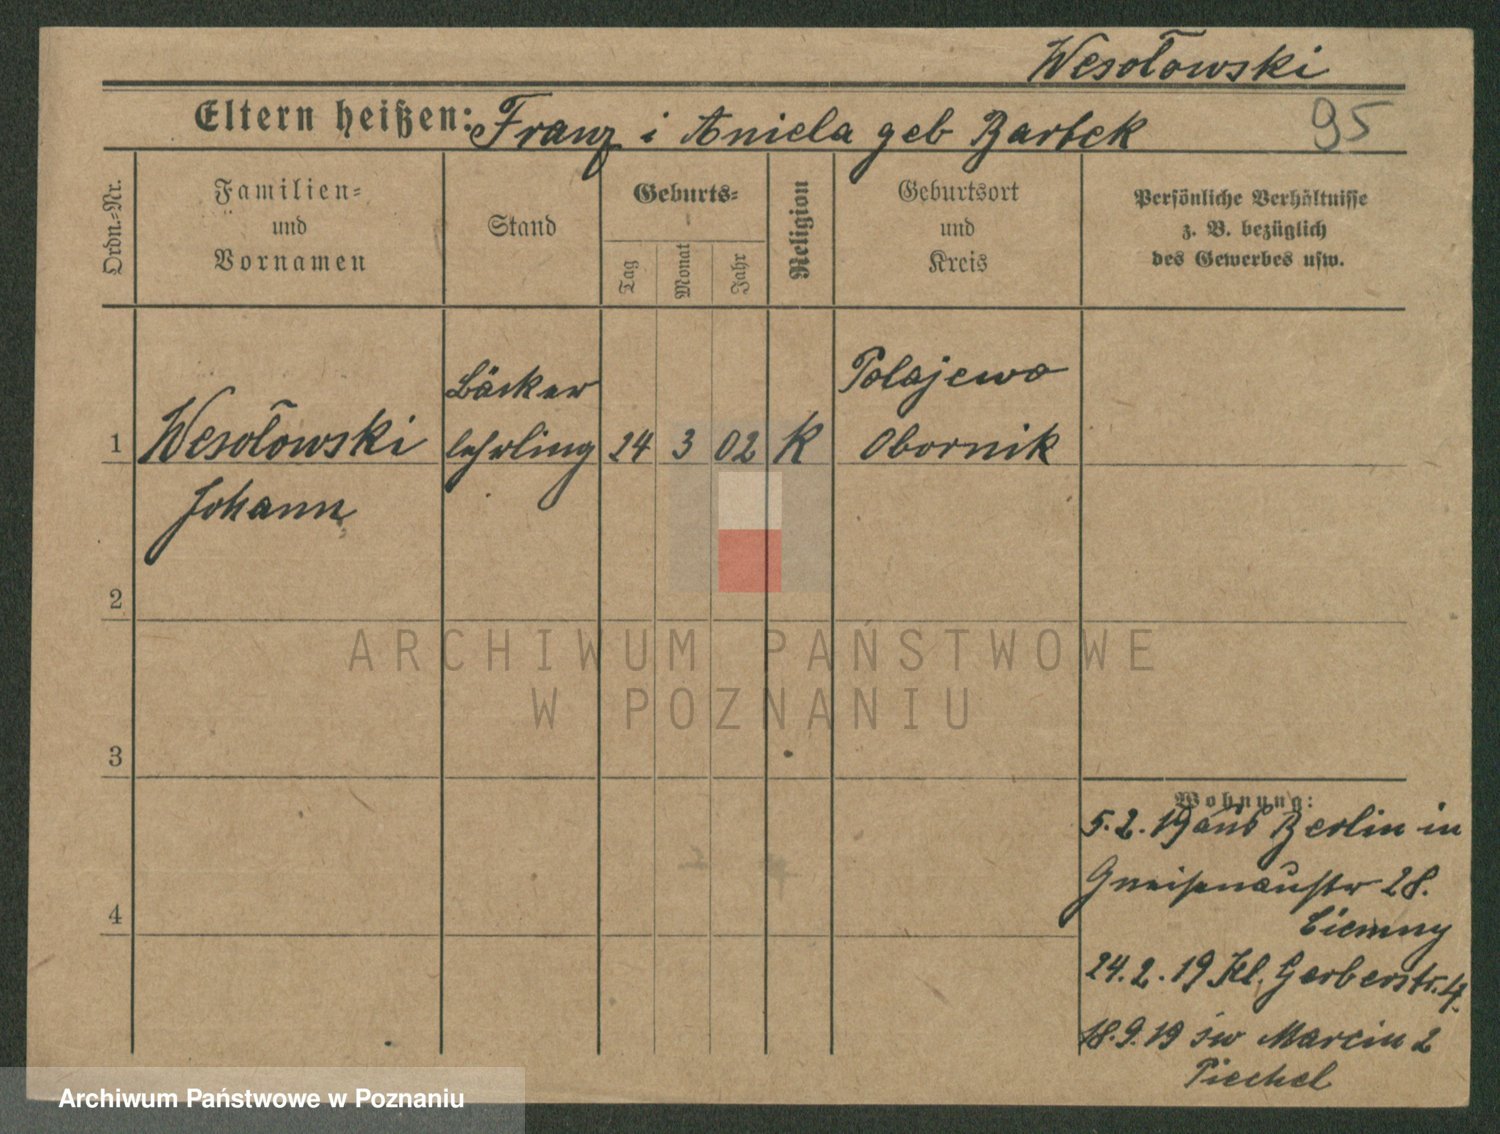 Wesołowski
Eltern heißen: Franz i Aniela geb Bartek
95
Ordn.=Nr.
Familien=
und
Vornamen
Stand
Geburts=
Tag
Monat
Jahr
Religion
Geburtsort
und
Kreis
Persönliche Verhältnisse
z. B. bezüglich
des Gewerbes usw.
1
Wesołowski
Johann
Bäcker
lehrling
24
3
02
K
Polajewo
Obornik
2
3
4
Wohnung:
5.2.19 aus Berlin in
Gneisenaustr 28.
Ciemny
24.2.19 Kl. Gerberstr. 4.
18.9.19 św Marcin 2
Piechel
ARCHIWUM PAŃSTWOWE
W POZNANIU
Archiwum Państwowe w Poznaniu